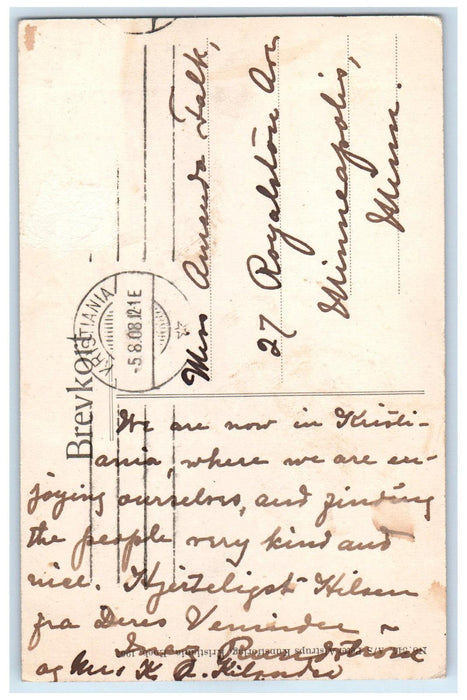 Brevkort
KRISTIANIA
-5.8.08.12 1E
Miss Amanda Falk,
27 Royalston Av.
Minneapolis,
Minn.
We are now in Kristi-
ania, where we are en-
joying ourselves, and finding
the people very kind and
nice. Hjerteligst Hilsen
fra Deres Veninder
og Mrs K A